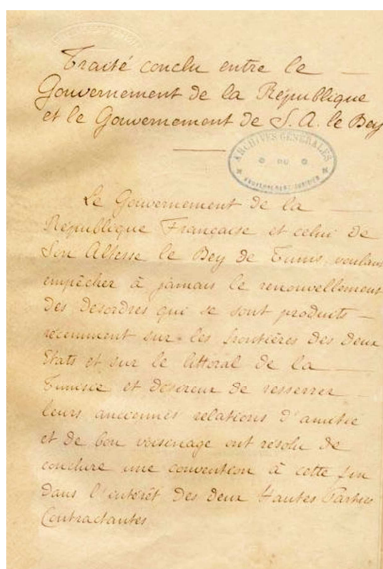 Traité conclu entre le
Gouvernement de la République
et le Gouvernement de S. A. le Bey
ARCHIVES GÉNÉRALES
DU
Le Gouvernement de la
République Française et celui de
Son Altesse le Bey de Tunis, voulant
empêcher à jamais le renouvellement
des désordres qui se sont produits
récemment sur les frontières des deux
États et sur le littoral de la
Tunisie et désireux de resserrer
leurs anciennes relations d'amitié
et de bon voisinage ont résolu de
conclure une convention à cette fin
dans l'intérêt des deux Hautes Parties
Contractantes